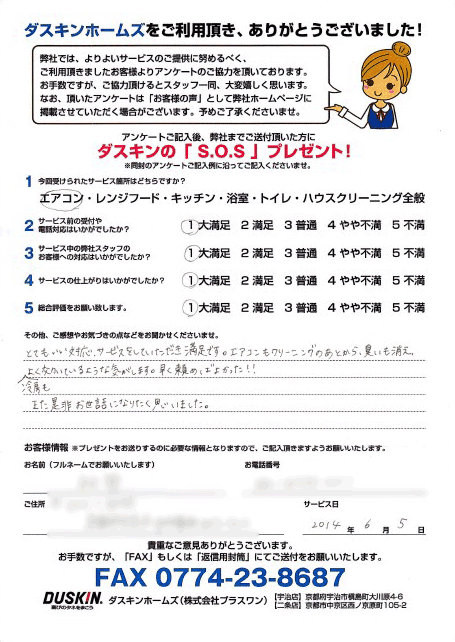 ダスキンホームズをご利用頂き、ありがとうございました！
弊社では、よりよいサービスのご提供に努めるべく、
ご利用頂きましたお客様よりアンケートのご協力を頂いております。
お手数ですが、ご協力頂けるとスタッフ一同、大変嬉しく思います。
なお、頂いたアンケートは「お客様の声」として弊社ホームページに
掲載させていただく場合がございます。予めご了承くださいませ。
アンケートご記入後、弊社までご送付頂いた方に
ダスキンの「 S.O.S 」プレゼント！
※同封のアンケートご記入例に沿ってご記入くださいませ。
1 今回受けられたサービス箇所はどちらですか？
エアコン・レンジフード・キッチン・浴室・トイレ・ハウスクリーニング全般
2 サービス前の受付や
電話対応はいかがでしたか？ 1 大満足 2 満足 3 普通 4 やや不満 5 不満
3 サービス中の弊社スタッフの
お客様への対応はいかがでしたか？ 1 大満足 2 満足 3 普通 4 やや不満 5 不満
4 サービスの仕上がりはいかがでしたか？ 1 大満足 2 満足 3 普通 4 やや不満 5 不満
5 総合評価をお願い致します。 1 大満足 2 満足 3 普通 4 やや不満 5 不満
その他、ご感想やお気づきの点などをお聞かせくださいませ。
とてもいい対応、サービスをしていただき満足です。エアコンもクリーニングのあとから、臭いも消え、
よく効いているような気がします。早く頼めばよかった!!
冷房も
また是非お世話になりたく思いました。
お客様情報 ※プレゼントをお送りするのに必要な情報となりますので、ご記入頂きますようお願いいたします。
お名前（フルネームでお願いいたします） お電話番号
ご住所 サービス日
2014 年 6 月 5 日
貴重なご意見ありがとうございます。
お手数ですが、「FAX」もしくは「返信用封筒」にてご送付をお願いいたします。
FAX 0774-23-8687
DUSKIN. ダスキンホームズ（株式会社プラスワン） [宇治店] 京都府宇治市槇島町大川原4-6
喜びのタネをまこう [二条店] 京都市中京区西ノ京原町105-2